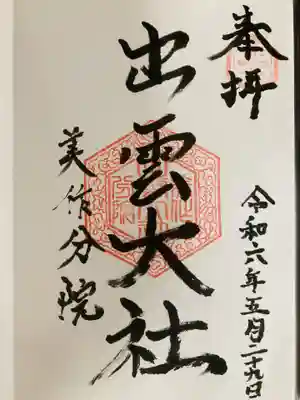 奉拝
出雲大社
美作分院
令和六年五月二十九日